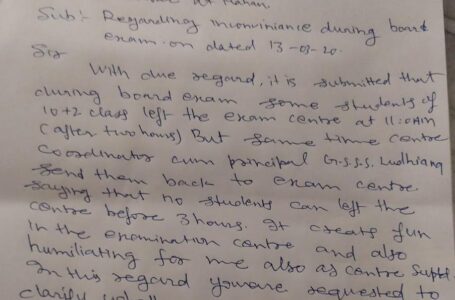 at
Sub:- Regarding inconviniance during board
exam. on dated 13-03-20.
Sir
With due regard, it is submitted that
during board exam some students of
10+2 class left the exam centre at 11:0AM
(after two hours) But same time centre
coordinator cum principal G.S.S.S. Ludhiana
send them back to exam centre.
saying that no students can left the
centre before 3 hours. It creats fun
in the examination centre and also
humiliating for me also as centre Suptt.
In this regard you are requested to
clarify